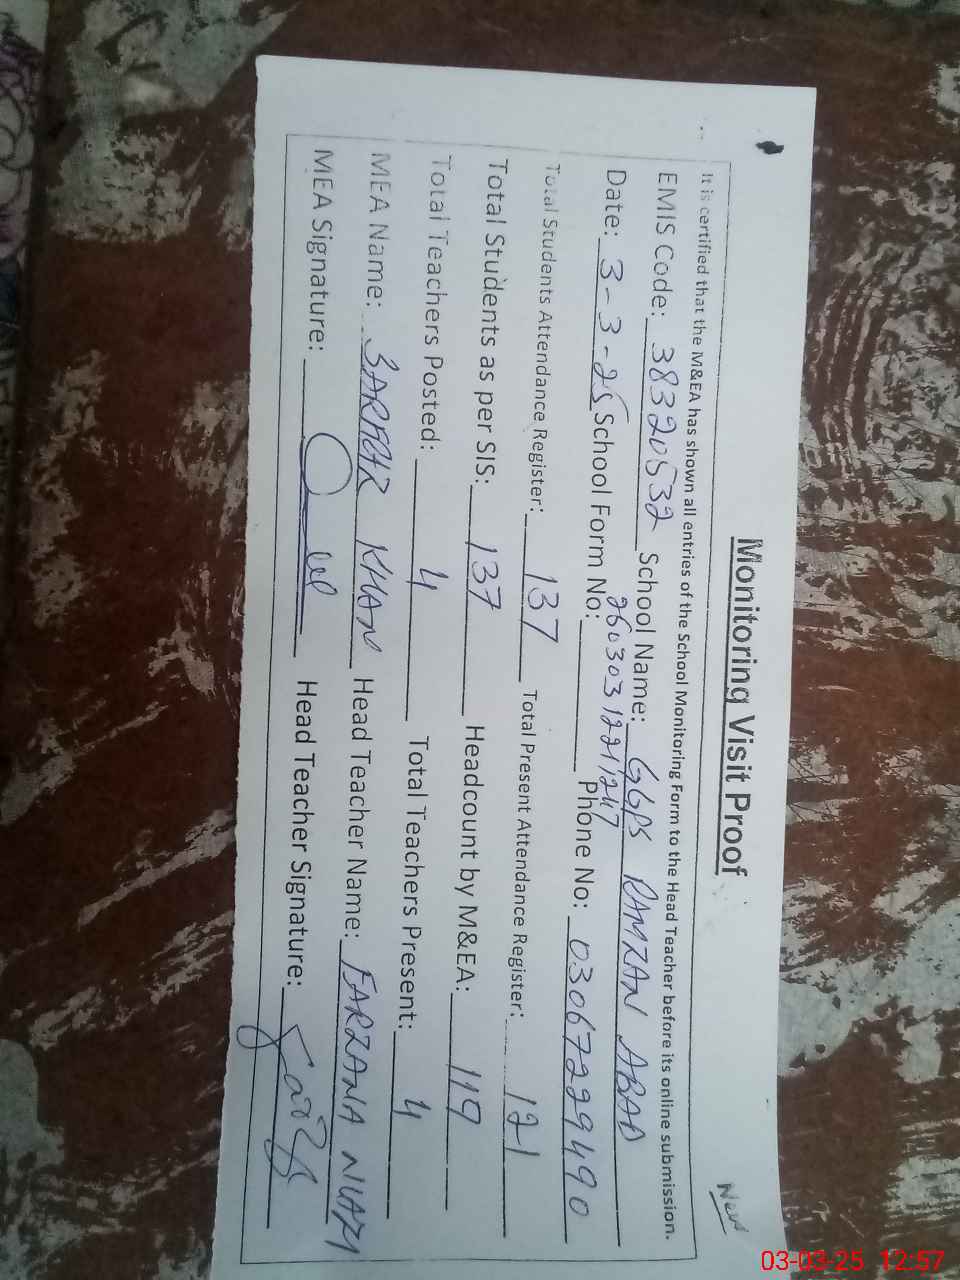 New
Monitoring Visit Proof
It is certified that the M&EA has shown all entries of the School Monitoring Form to the Head Teacher before its online submission.
EMIS Code: 38320532 School Name: GGPS RAMZAN ABAD
Date: 3-3-25 School Form No: 2603031221247 Phone No: 03067229490
Total Students Attendance Register: 137 Total Present Attendance Register: 121
Total Students as per SIS: 137 Headcount by M&EA: 119
Total Teachers Posted: 4 Total Teachers Present: 4
MEA Name: ZARFAR KHAN Head Teacher Name: FARZANA NIAZI
MEA Signature: Head Teacher Signature:
03-03-25 12:57